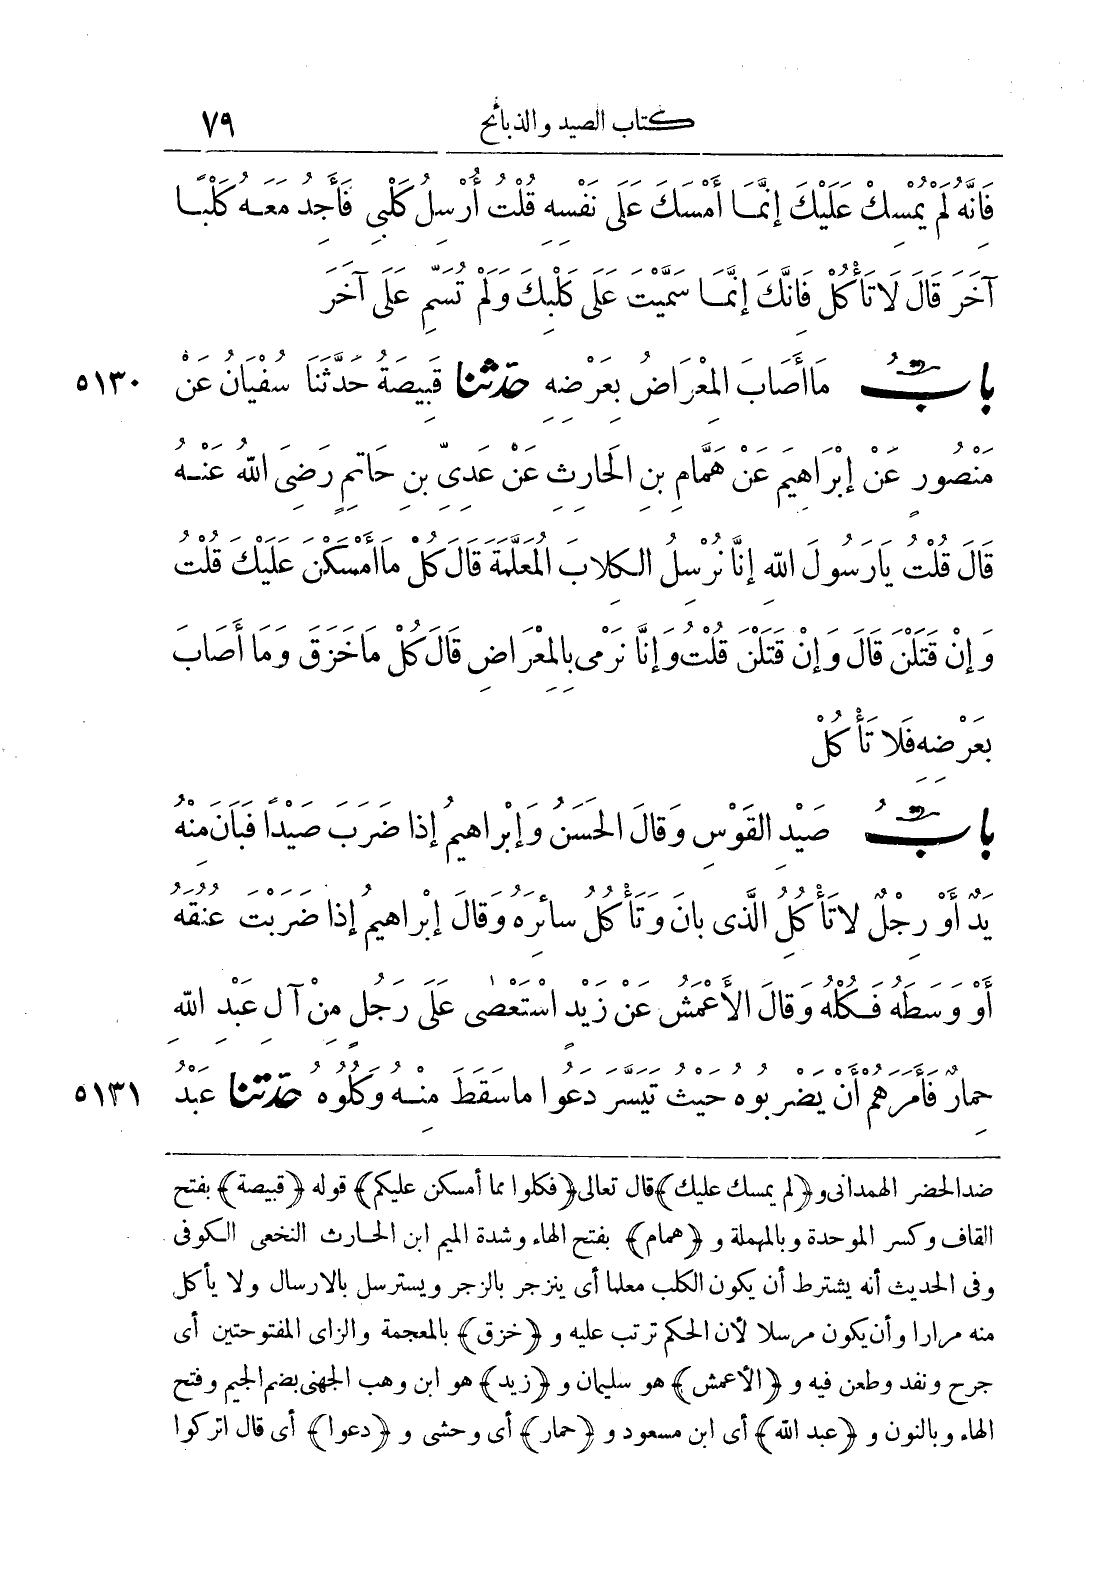 كتاب الصيد والذبائح ٧٩
فَإِنَّهُ لَمْ يُمْسِكْ عَلَيْكَ إِنَّمَا أَمْسَكَ عَلَى نَفْسِهِ قُلْتُ أُرْسِلُ كَلْبِي فَأَجِدُ مَعَهُ كَلْبًا
آخَرَ قَالَ لَا تَأْكُلْ فَإِنَّكَ إِنَّمَا سَمَّيْتَ عَلَى كَلْبِكَ وَلَمْ تُسَمِّ عَلَى آخَرَ
بابُ مَا أَصَابَ الْمِعْرَاضُ بِعَرْضِهِ حَدَّثَنَا قَبِيصَةُ حَدَّثَنَا سُفْيَانُ عَنْ ٥١٣٠
مَنْصُورٍ عَنْ إِبْرَاهِيمَ عَنْ هَمَّامِ بنِ الْحَارِثِ عَنْ عَدِيِّ بنِ حَاتِمٍ رَضِيَ اللهُ عَنْهُ
قَالَ قُلْتُ يَا رَسُولَ اللهِ إِنَّا نُرْسِلُ الكِلَابَ الْمُعَلَّمَةَ قَالَ كُلْ مَا أَمْسَكْنَ عَلَيْكَ قُلْتُ
وَإِنْ قَتَلْنَ قَالَ وَإِنْ قَتَلْنَ قُلْتُ وَإِنَّا نَرْمِى بِالْمِعْرَاضِ قَالَ كُلْ مَا خَزَقَ وَمَا أَصَابَ
بِعَرْضِهِ فَلَا تَأْكُلْ
بابُ صَيْدِ القَوْسِ وَقَالَ الْحَسَنُ وَإِبْرَاهِيمُ إِذَا ضَرَبَ صَيْدًا فَبَانَ مِنْهُ
يَدٌ أَوْ رِجْلٌ لَا تَأْكُلُ الَّذِى بَانَ وَتَأْكُلُ سَائِرَهُ وَقَالَ إِبْرَاهِيمُ إِذَا ضَرَبْتَ عُنُقَهُ
أَوْ وَسَطَهُ فَكُلْهُ وَقَالَ الأَعْمَشُ عَنْ زَيْدٍ اسْتَعْصَى عَلَى رَجُلٍ مِنْ آلِ عَبْدِ اللهِ
حِمَارٌ فَأَمَرَهُمْ أَنْ يَضْرِبُوهُ حَيْثُ تَيَسَّرَ دَعُوا مَا سَقَطَ مِنْهُ وَكُلُوهُ حَدَّثَنَا عَبْدُ ٥١٣١
ضد الحضر الهمدانى و ﴿لم يمسك عليك﴾ قال تعالى ﴿فكلوا مما أمسكن عليكم﴾ قوله ﴿قبيصة﴾ بفتح
القاف وكسر الموحدة وبالمهملة و ﴿همام﴾ بفتح الهاء وشدة الميم ابن الحارث النخعى الكوفى
وفى الحديث أنه يشترط أن يكون الكلب معلما أى ينزجر بالزجر ويسترسل بالارسال ولا يأكل
منه مرارا وأن يكون مرسلا لأن الحكم ترتب عليه و ﴿خزق﴾ بالمعجمة والزاى المفتوحتين أى
جرح ونفد وطعن فيه و ﴿الأعمش﴾ هو سليمان و ﴿زيد﴾ هو ابن وهب الجهنى بضم الجيم وفتح
الهاء وبالنون و ﴿عبد الله﴾ أى ابن مسعود و ﴿حمار﴾ أى وحشى و ﴿دعوا﴾ أى قال اتركوا